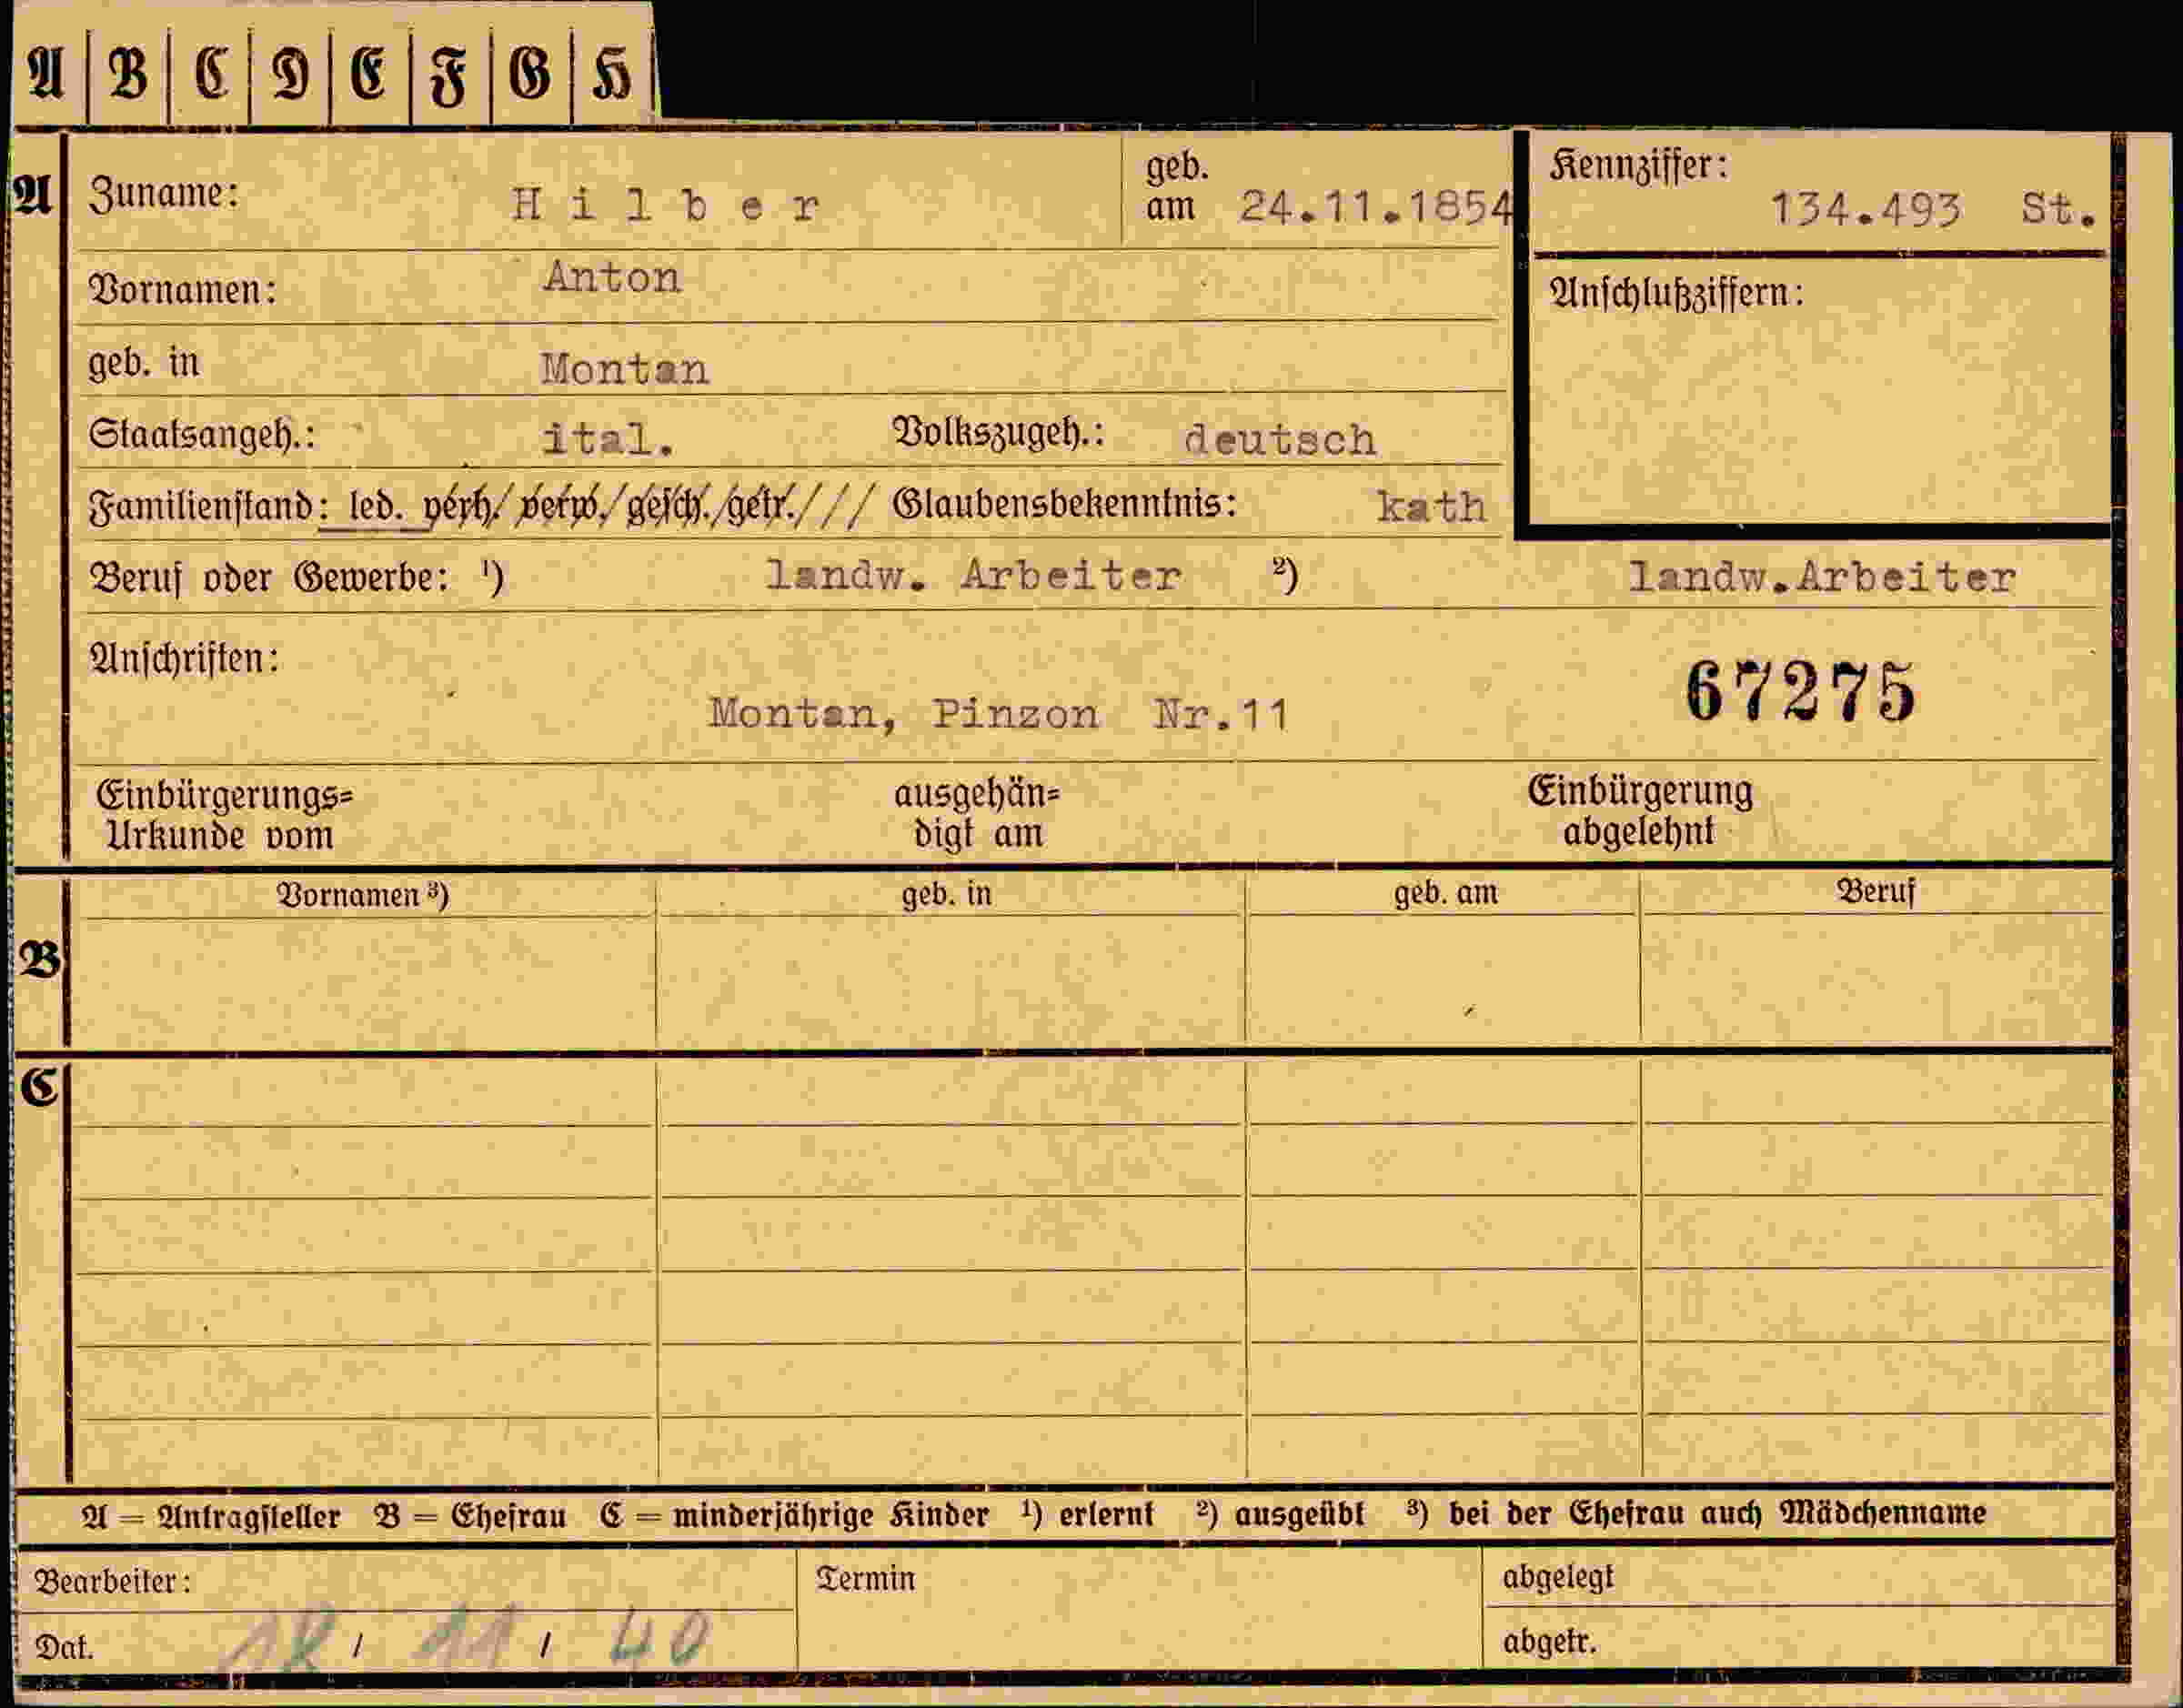 A B C D E F G H
A Zuname: Hilber geb. am 24.11.1854 Kennziffer: 134.493 St.
Vornamen: Anton Anschlußziffern:
geb. in Montan
Staatsangeh.: ital. Volkszugeh.: deutsch
Familienstand: led. verh. verw. gesch. getr. / / / Glaubensbekenntnis: kath
Beruf oder Gewerbe: ¹) landw. Arbeiter ²) landw.Arbeiter
Anschriften:
67275
Montan, Pinzon Nr.11
Einbürgerungs= ausgehän= Einbürgerung
Urkunde vom digt am abgelehnt
Vornamen ³) geb. in geb. am Beruf
B
C
A = Antragsteller B = Ehefrau C = minderjährige Kinder ¹) erlernt ²) ausgeübt ³) bei der Ehefrau auch Mädchenname
Bearbeiter: Termin abgelegt
Dat. 18 / 11 / 40 abgetr.